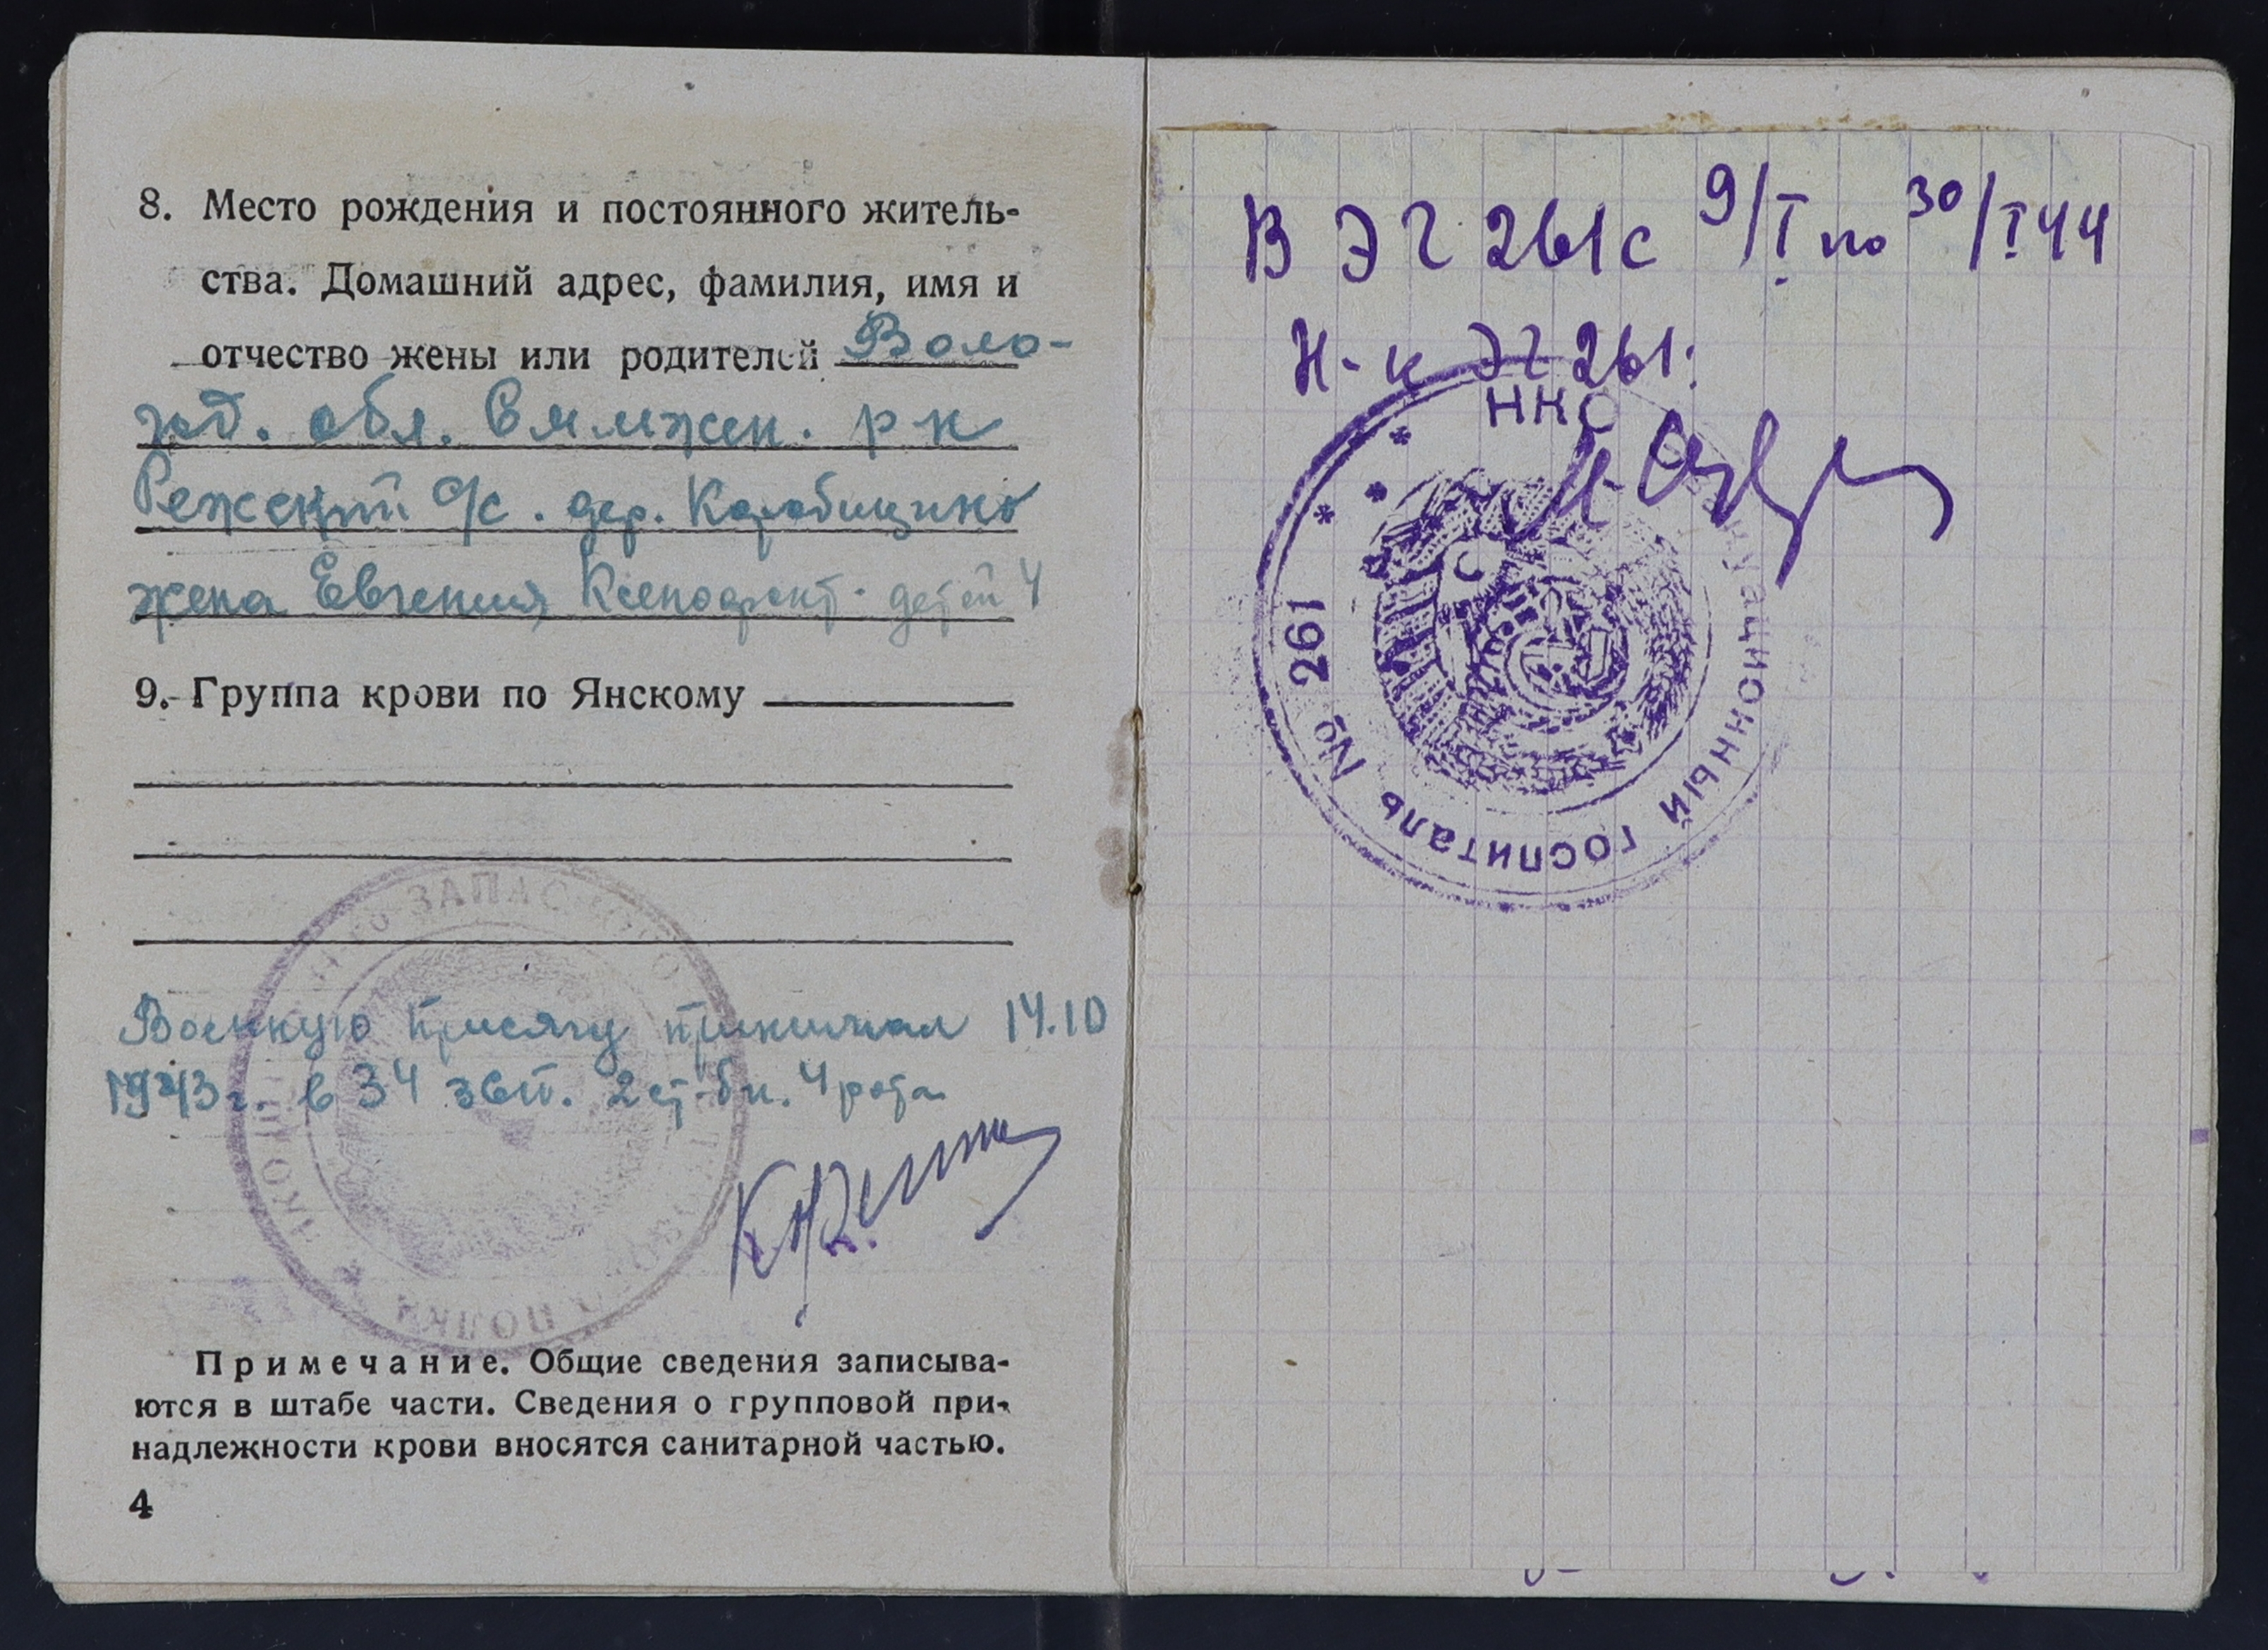 8. Место рождения и постоянного житель-
ства. Домашний адрес, фамилия, имя и
отчество жены или родителей Воло-
год. обл. Сямжен. р-н
Режский с/с. дер. Коробицино
жена Евгения Ксенофонт. детей 4
9. Группа крови по Янскому
Военную присягу принимал 14.10
1943 г. в 34 зсп. 2 ст. бн. 4 рота
ЗАПАСНОГО
ПОЛКА
Примечание. Общие сведения записыва-
ются в штабе части. Сведения о групповой при-
надлежности крови вносятся санитарной частью.
4
В ЭГ 261 с 9/I по 30/I 44
Н-к ЭГ 261:
НКО
эвакуационный госпиталь № 261